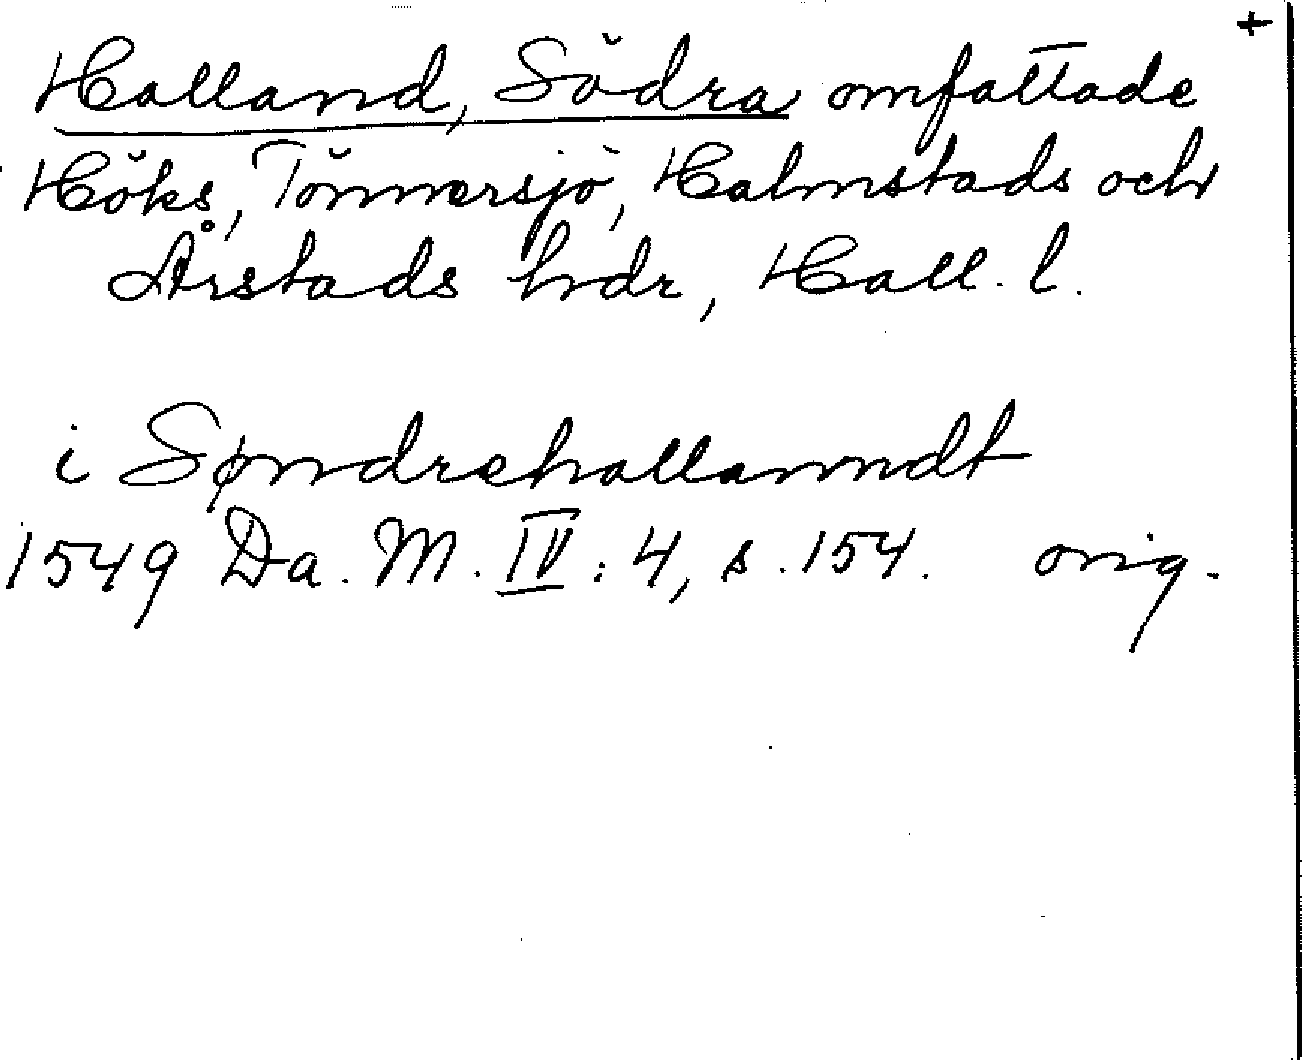 +
Halland, Södra omfattade
Höks, Tönnersjö, Halmstads och
Årstads hdr, Hall. l.
i Søndrehallanndt
1549 Da. M. IV: 4, s. 154. orig.